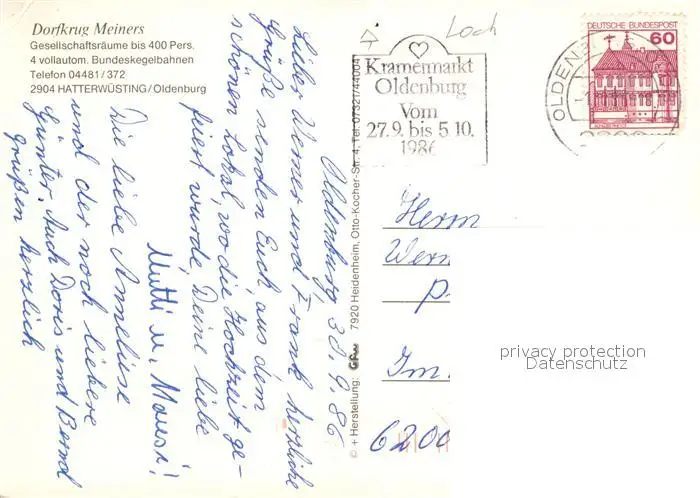 Dorfkrug Meiners
Gesellschaftsräume bis 400 Pers.
4 vollautom. Bundeskegelbahnen
Telefon 04481/372
2904 HATTERWÜSTING/Oldenburg
Oldenburg 30.9.86
Lieber Werner und Frank herzliche
Grüße senden Euch aus dem
schönen Lokal, wo die Hochzeit ge-
feiert wurde, Deine liebe
Mutti u. Mausi!
Die liebe Anneliese
und der noch liebere
Günter. Auch Doris und Bernd
grüßen herzlich
© + Herstellung: 7920 Heidenheim, Otto-Kocher-Str. 4, Tel. 07321/44004
Loch
Kramermarkt
Oldenburg
Vom
27.9. bis 5.10.
1986
DEUTSCHE BUNDESPOST
60
Herrn
Wern
Im
6200
privacy protection
Datenschutz